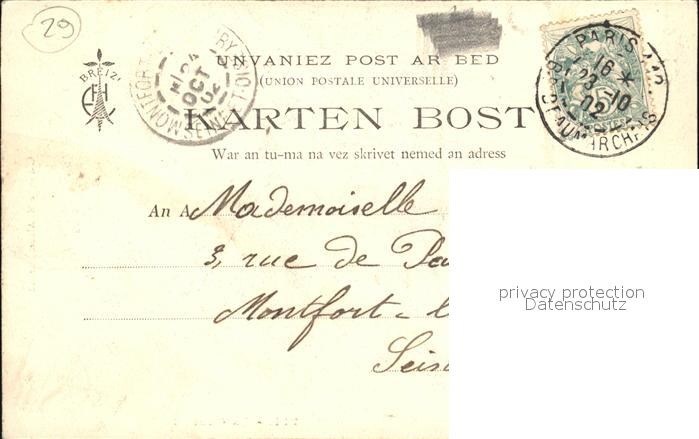 29
BREIZ
UNVANIEZ POST AR BED
(UNION POSTALE UNIVERSELLE)
KARTEN BOST
War an tu-ma na vez skrivet nemed an address
24
OCT
02
SEINE ET OISE
PARIS
16 *
22 -10
02
An A Mademoiselle
3, rue de
Montfort - l
privacy protection
Datenschutz